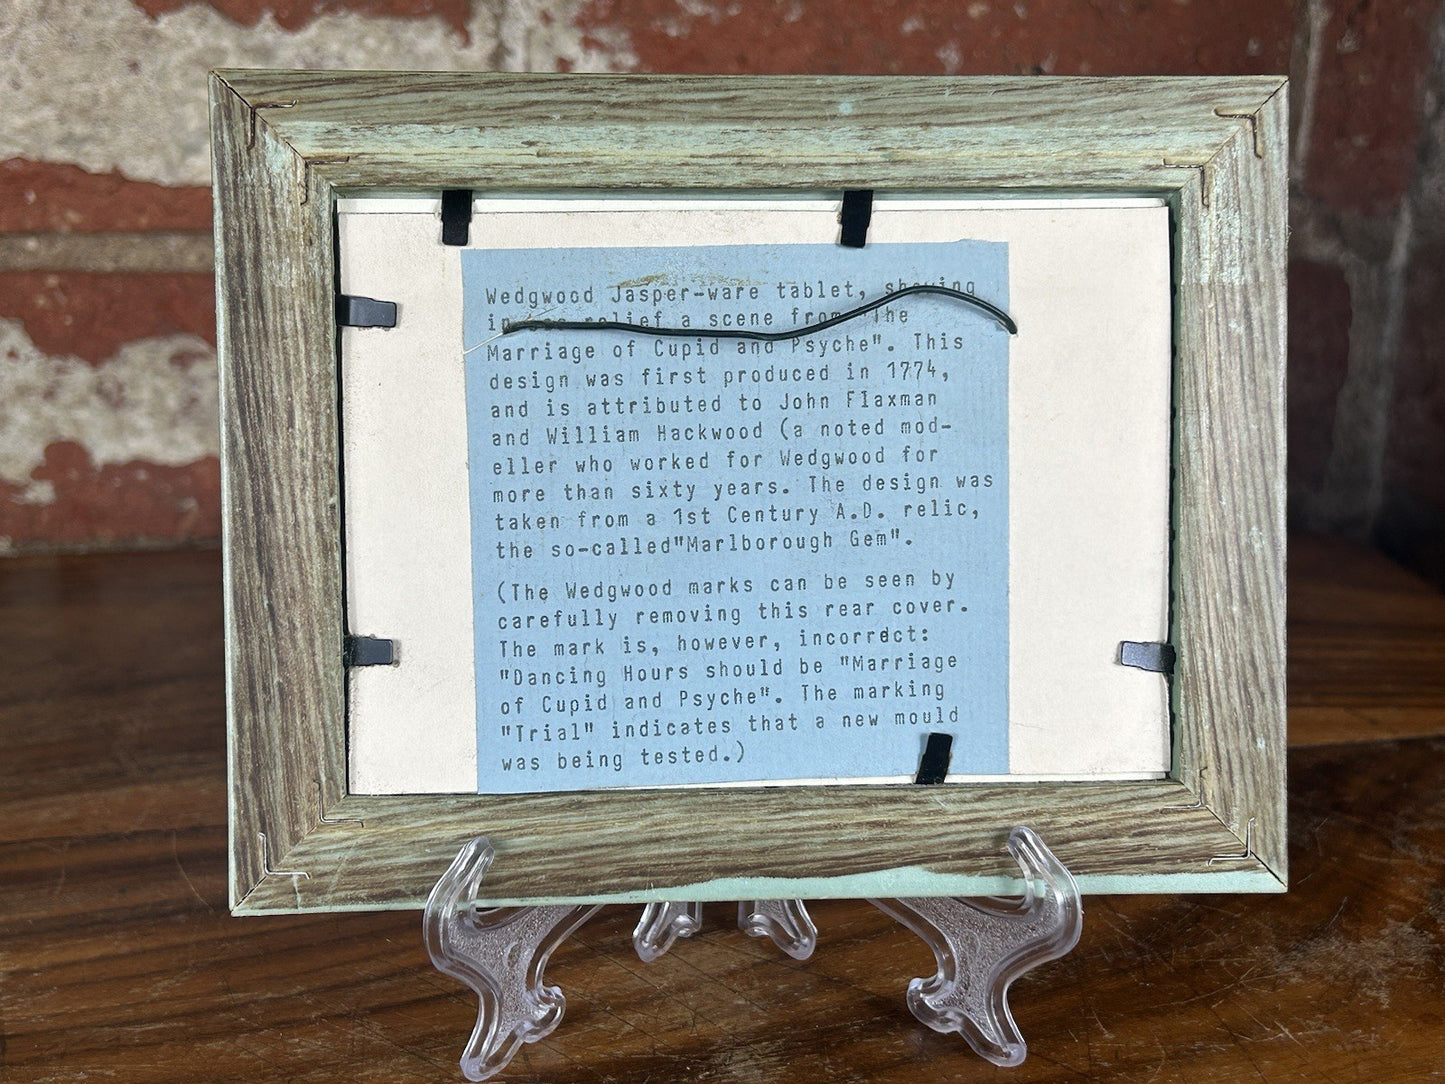 Wedgwood Jasper-ware tablet, showing
in relief a scene from "The
Marriage of Cupid and Psyche". This
design was first produced in 1774,
and is attributed to John Flaxman
and William Hackwood (a noted mod-
eller who worked for Wedgwood for
more than sixty years. The design was
taken from a 1st Century A.D. relic,
the so-called"Marlborough Gem".
(The Wedgwood marks can be seen by
carefully removing this rear cover.
The mark is, however, incorrect:
"Dancing Hours should be "Marriage
of Cupid and Psyche". The marking
"Trial" indicates that a new mould
was being tested.)